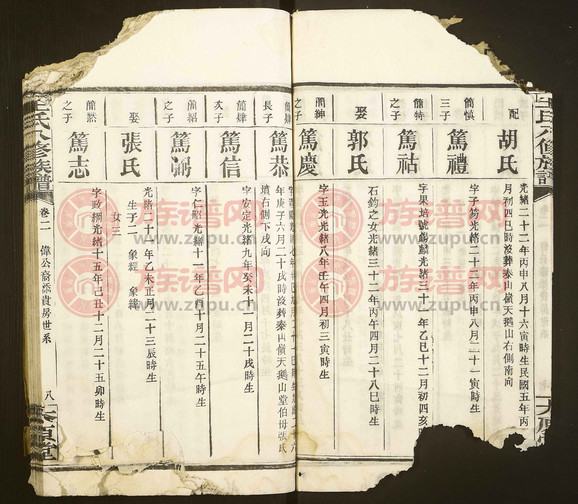 王氏八修族譜
配
胡氏
光緒二十二年丙申八月十六寅時生民國五年丙
月初四巳時沒葬泰山嶺天鵝山右側南向
簡慎
三子
篤禮
字子筠光緒二十二年丙申八月二十一寅時生
簡特
之子
篤祜
字果培號錫麟光緒三十一年乙巳十二月初四亥
娶
郭氏
石鈞之女光緒三十二年丙午四月二十八巳時生
簡紳
之子
篤慶
字玉光光緒八年壬午四月初三寅時生
簡肆
長子
篤恭
年庚子六月二十戌時沒葬泰山嶺天鵝山堂伯母張氏
墳右側下戌向
簡肆
次子
篤信
字安定光緒九年癸未十一月二十戌時生
簡紹
之子
篤弼
字仁昭光緒十一年乙酉十月二十五午時生
娶
張氏
光緒二十一年乙未正月二十三辰時生
生子二 象經 象緯
女三
簡燃
之子
篤志
字政綱光緒十五年己丑十二月二十五卯時生
王氏八修族譜
卷二 偉公裔添貴房世系
八
族谱网
www.zupu.cn
族谱网
www.zupu.cn
族谱网
www.zupu.cn
族谱网
www.zupu.cn